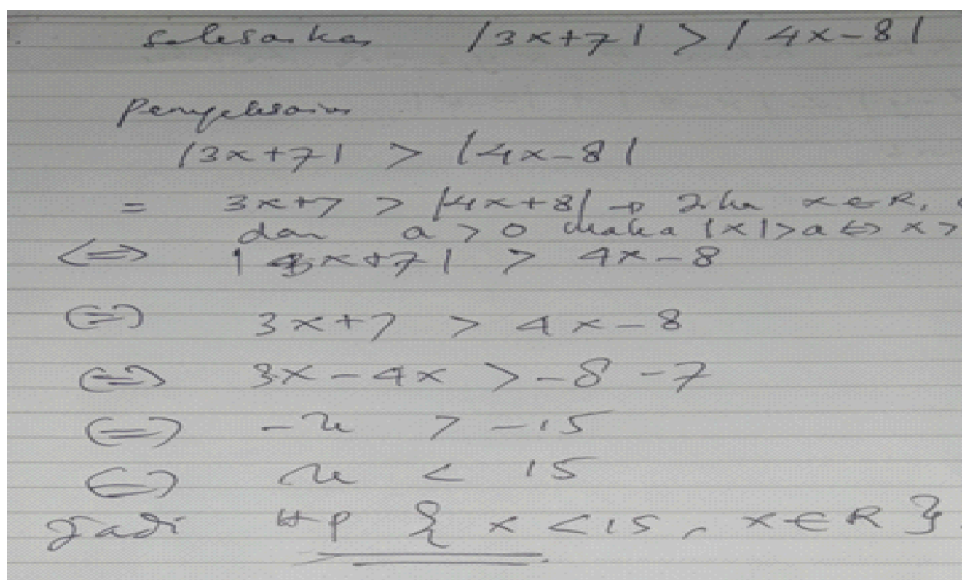 selesaikan |3x+7| > |4x-8|
Penyelesaian
|3x+7| > |4x-8|
= 3x+7 > |4x+8| → Jika x ∈ R,
dan a > 0 maka |x|>a ⇔ x >
⇔ |3x+7| > 4x-8
⇔ 3x+7 > 4x-8
⇔ 3x-4x > -8-7
⇔ -x > -15
⇔ x < 15
Jadi HP { x < 15, x ∈ R }